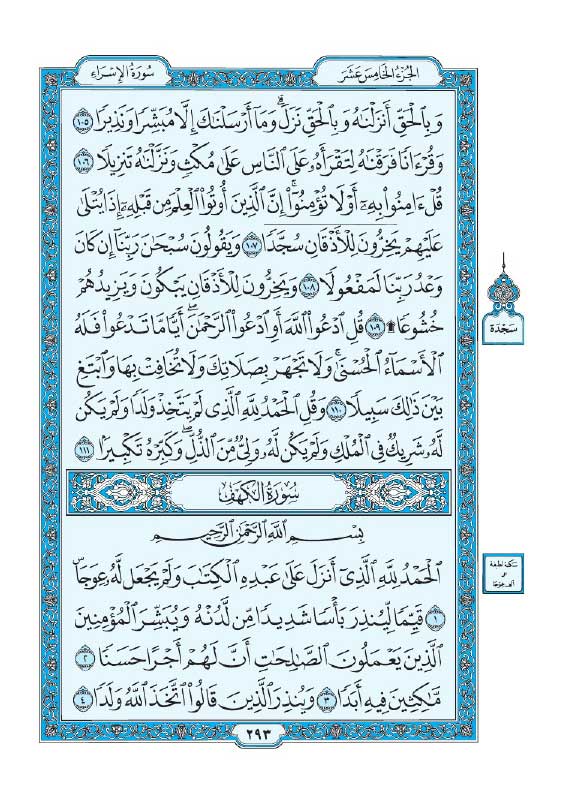 الجزء الخامس عشر
سورة الإسراء
وَبِٱلْحَقِّ أَنزَلْنَٰهُ وَبِٱلْحَقِّ نَزَلَۗ وَمَآ أَرْسَلْنَٰكَ إِلَّا مُبَشِّرًا وَنَذِيرًا ١٠٥
وَقُرْءَانًا فَرَقْنَٰهُ لِتَقْرَأَهُۥ عَلَى ٱلنَّاسِ عَلَىٰ مُكْثٍ وَنَزَّلْنَٰهُ تَنزِيلًا ١٠٦
قُلْ ءَامِنُوا۟ بِهِۦٓ أَوْ لَا تُؤْمِنُوٓا۟ۚ إِنَّ ٱلَّذِينَ أُوتُوا۟ ٱلْعِلْمَ مِن قَبْلِهِۦٓ إِذَا يُتْلَىٰ
عَلَيْهِمْ يَخِرُّونَ لِلْأَذْقَانِ سُجَّدًا ١٠٧ وَيَقُولُونَ سُبْحَٰنَ رَبِّنَآ إِن كَانَ
وَعْدُ رَبِّنَا لَمَفْعُولًا ١٠٨ وَيَخِرُّونَ لِلْأَذْقَانِ يَبْكُونَ وَيَزِيدُهُمْ
خُشُوعًا ۩ ١٠٩ قُلِ ٱدْعُوا۟ ٱللَّهَ أَوِ ٱدْعُوا۟ ٱلرَّحْمَٰنَۖ أَيًّا مَّا تَدْعُوا۟ فَلَهُ
ٱلْأَسْمَآءُ ٱلْحُسْنَىٰۚ وَلَا تَجْهَرْ بِصَلَاتِكَ وَلَا تُخَافِتْ بِهَا وَٱبْتَغِ
بَيْنَ ذَٰلِكَ سَبِيلًا ١١٠ وَقُلِ ٱلْحَمْدُ لِلَّهِ ٱلَّذِى لَمْ يَتَّخِذْ وَلَدًا وَلَمْ يَكُن
لَّهُۥ شَرِيكٌ فِى ٱلْمُلْكِ وَلَمْ يَكُن لَّهُۥ وَلِىٌّ مِّنَ ٱلذُّلِّۖ وَكَبِّرْهُ تَكْبِيرًۢا ١١١
سورة الكهف
بِسْمِ ٱللَّهِ ٱلرَّحْمَٰنِ ٱلرَّحِيمِ
ٱلْحَمْدُ لِلَّهِ ٱلَّذِىٓ أَنزَلَ عَلَىٰ عَبْدِهِ ٱلْكِتَٰبَ وَلَمْ يَجْعَل لَّهُۥ عِوَجَاۜ
١ قَيِّمًا لِّيُنذِرَ بَأْسًا شَدِيدًا مِّن لَّدُنْهُ وَيُبَشِّرَ ٱلْمُؤْمِنِينَ
ٱلَّذِينَ يَعْمَلُونَ ٱلصَّٰلِحَٰتِ أَنَّ لَهُمْ أَجْرًا حَسَنًا ٢
مَّٰكِثِينَ فِيهِ أَبَدًا ٣ وَيُنذِرَ ٱلَّذِينَ قَالُوا۟ ٱتَّخَذَ ٱللَّهُ وَلَدًا ٤
٢٩٣
سجدة
سكتة لطيفة
على
ألف عوجا